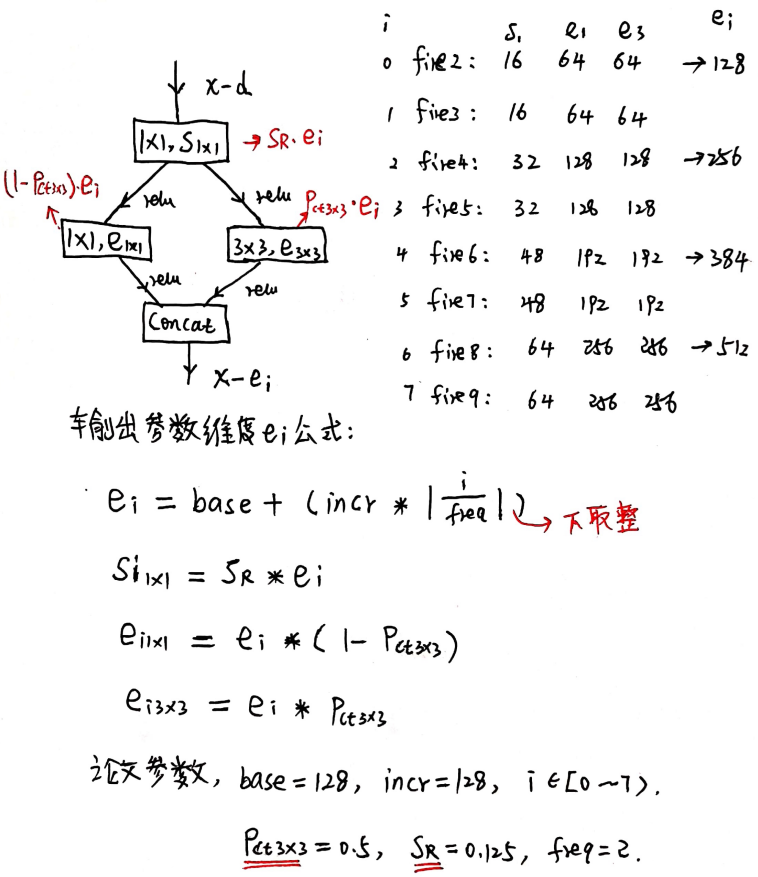 x-d
1×1, S1×1 → SR·ei
(1-Pct3×3)·ei
relu relu
Pct3×3·ei
1×1, e1×1
3×3, e3×3
relu relu
Concat
x-ei
i S1 e1 e3 ei
0 fire2: 16 64 64 →128
1 fire3: 16 64 64
2 fire4: 32 128 128 →256
3 fire5: 32 128 128
4 fire6: 48 192 192 →384
5 fire7: 48 192 192
6 fire8: 64 256 256 →512
7 fire9: 64 256 256
输出参数维度ei公式:
ei = base + (incr * |i/freq|) → 下取整
Si1×1 = SR * ei
ei1×1 = ei * (1 - Pct3×3)
ei3×3 = ei * Pct3×3
论文参数, base=128, incr=128, i∈[0~7).
Pct3×3 = 0.5, SR = 0.125, freq=2.